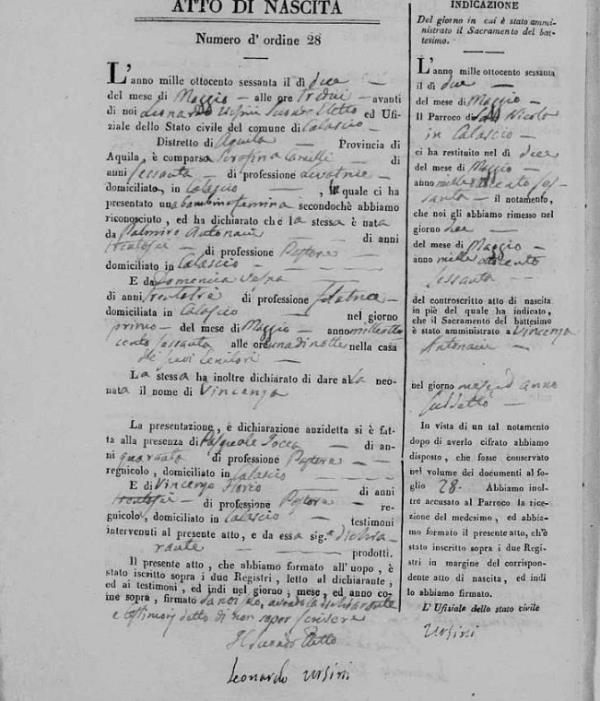 ATTO DI NASCITA
Numero d' ordine 28
L'anno mille ottocento sessanta il dì due
del mese di Maggio alle ore tredici avanti
di noi Leonardo Ursini Secondo Eletto ed Ufi-
ziale dello Stato civile del comune di Calascio
Distretto di Aquila Provincia di
Aquila, è comparsa Serafina di
anni sessanta di professione Levatrice
domiciliata, in Calascio , la quale ci ha
presentato una bambina femina secondochè abbiamo
riconosciuto, ed ha dichiarato che la stessa è nata
da Palmiro Antonacci di anni
trentasei di professione Pastore
domiciliato in Calascio
E da Domenica Vespa
di anni trentatrè di professione filatrice
domiciliata in Calascio nel giorno
primo del mese di Maggio anno mille otto
cento sessanta alle ore una di notte nella casa
di suoi genitori
La stessa ha inoltre dichiarato di dare alla neo-
nata il nome di Vincenza
La presentazione, e dichiarazione anzidetta si è fat-
ta alla presenza di Pasquale di an-
ni quaranta di professione Pastore
regnicolo, domiciliato in Calascio
E di Vincenzo Florio di anni
trentasei di professione Pastore re-
gnicolo, domiciliato in Calascio testimoni
intervenuti al presente atto, e da essa sig.ª dichia
rante prodotti.
Il presente atto, che abbiamo formato all'uopo, è
stato iscritto sopra i due Registri, letto al dichiarante,
ed ai testimoni, ed indi nel giorno, mese, ed anno co-
me sopra, firmato da noi, avendo la dichiarante
e testimonj detto di non saper scrivere
Il Secondo Eletto
Leonardo Ursini
INDICAZIONE
Del giorno in cui è stato ammi-
nistrato il Sacramento del bat-
tesimo.
L'anno mille ottocento sessanta
il dì due
del mese di Maggio
Il Parroco di San Nicola
in Calascio
ci ha restituito nel dì due
del mese di Maggio
anno mille ottocento ses-
santa il notamento,
che noi gli abbiamo rimesso nel
giorno due
del mese di Maggio
anno mille ottocento
sessanta
del controscritto atto di nascita
in piè del quale ha indicato,
che il Sacramento del battesimo
è stato amministrato a Vincenza
Antonacci
nel giorno mese ed anno
suddetto
In vista di un tal notamento
dopo di averlo cifrato abbiamo
disposto, che fosse conservato
nel volume dei documenti al fo-
glio 28. Abbiamo inol-
tre accusato al Parroco la rice-
zione del medesimo, ed abbia-
mo formato il presente atto, ch'è
stato iscritto sopra i due Regi-
stri in margine del corrispon-
dente atto di nascita, ed indi
lo abbiamo firmato.
L'Ufiziale dello stato civile
Ursini